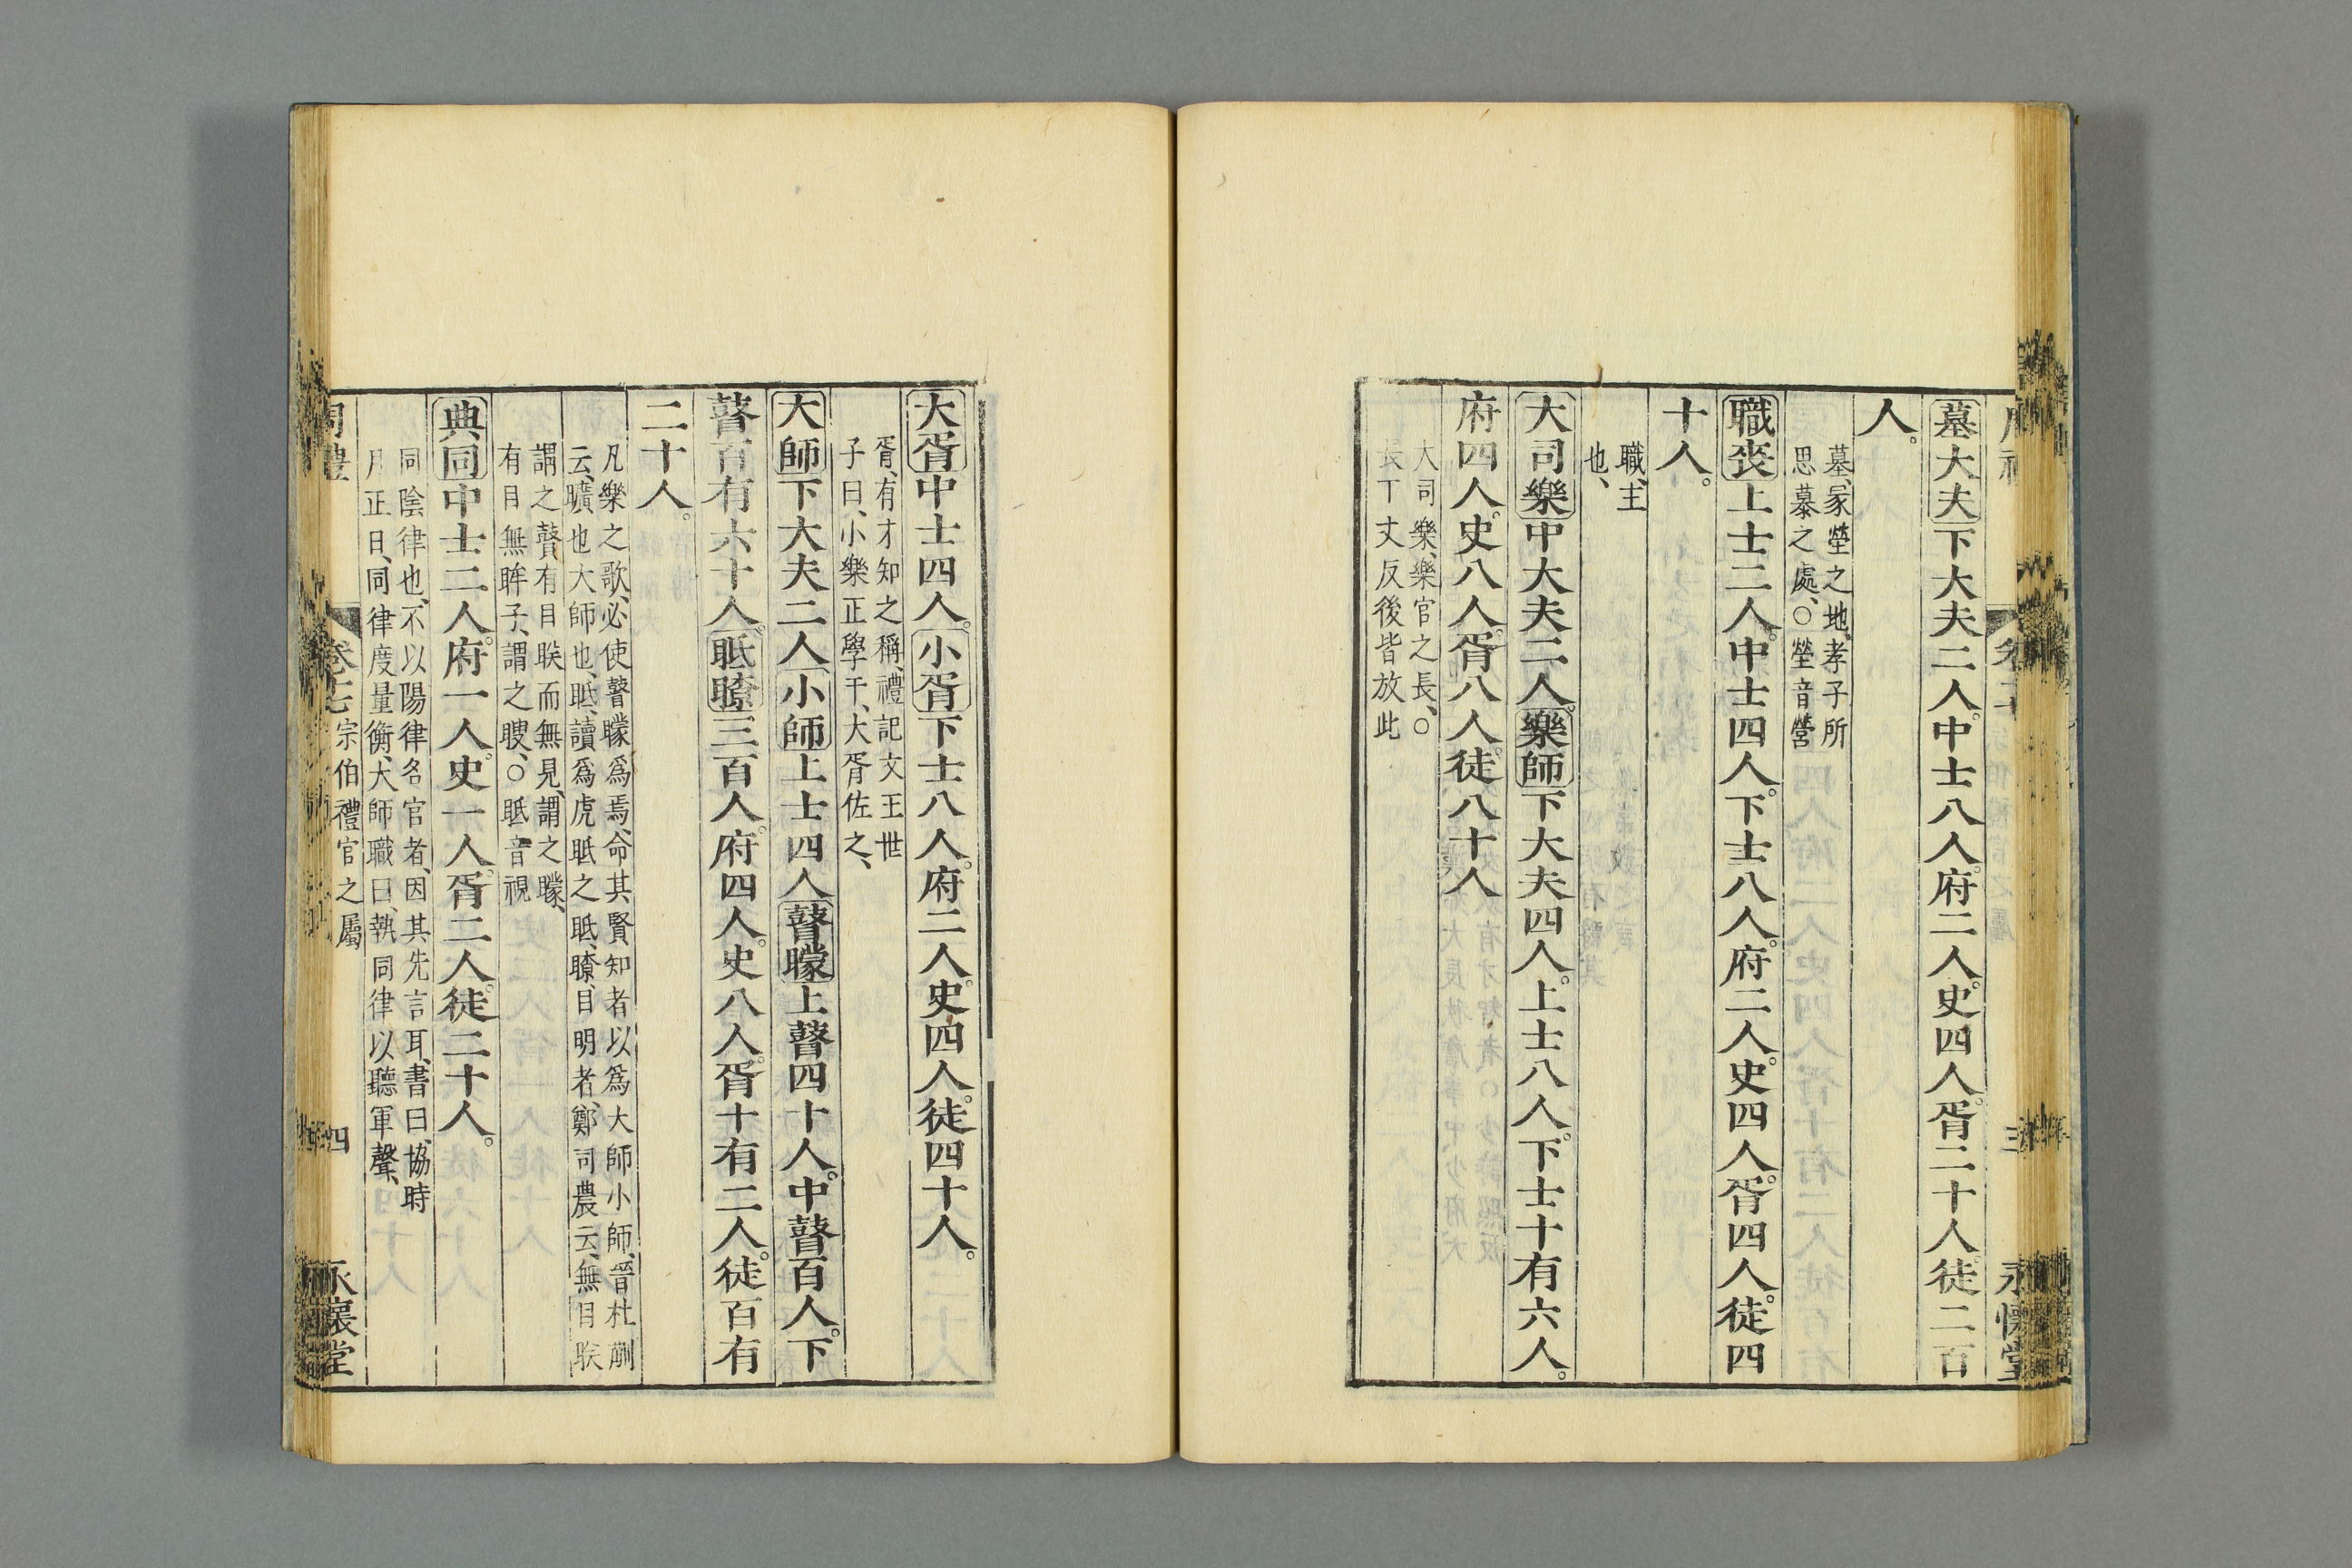 墓大夫下大夫二人。中士八人。府二人。史四人。胥二十人。徒二百
人。
墓、冢塋之地、孝子所
思慕之處、○塋音營
職喪上士二人。中士四人。下士八人。府二人。史四人。胥四人。徒四
十人。
職、主
也、
大司樂中大夫二人。樂師下大夫四人。上士八人。下士十有六人。
府四人。史八人。胥八人。徒八十人
大司樂、樂官之長、○
長丁丈反後皆放此
永懷堂
大胥中士四人。小胥下士八人。府二人。史四人。徒四十人。
胥、有才知之稱、禮記文王世
子曰、小樂正學干、大胥佐之、
大師下大夫二人。小師上士四人。瞽矇上瞽四十人。中瞽百人。下
瞽百有六十人。眡瞭三百人。府四人。史八人。胥十有二人。徒百有
二十人。
凡樂之歌、必使瞽矇爲焉、命其賢知者以爲大師小師、晉杜蒯
云、曠也大師也、眡、讀爲虎眡之眡、瞭、目明者、鄭司農云、無目眹
謂之瞽、有目眹而無見、謂之矇、
有目無眸子、謂之瞍、○眡音視
典同中士二人。府一人。史一人。胥二人。徒二十人。
同陰律也、不以陽律名官者、因其先言耳、書曰、協時
月正日、同律度量衡、大師職曰、執同律以聽軍聲、
周禮 卷十七 宗伯禮官之屬 四 永懷堂